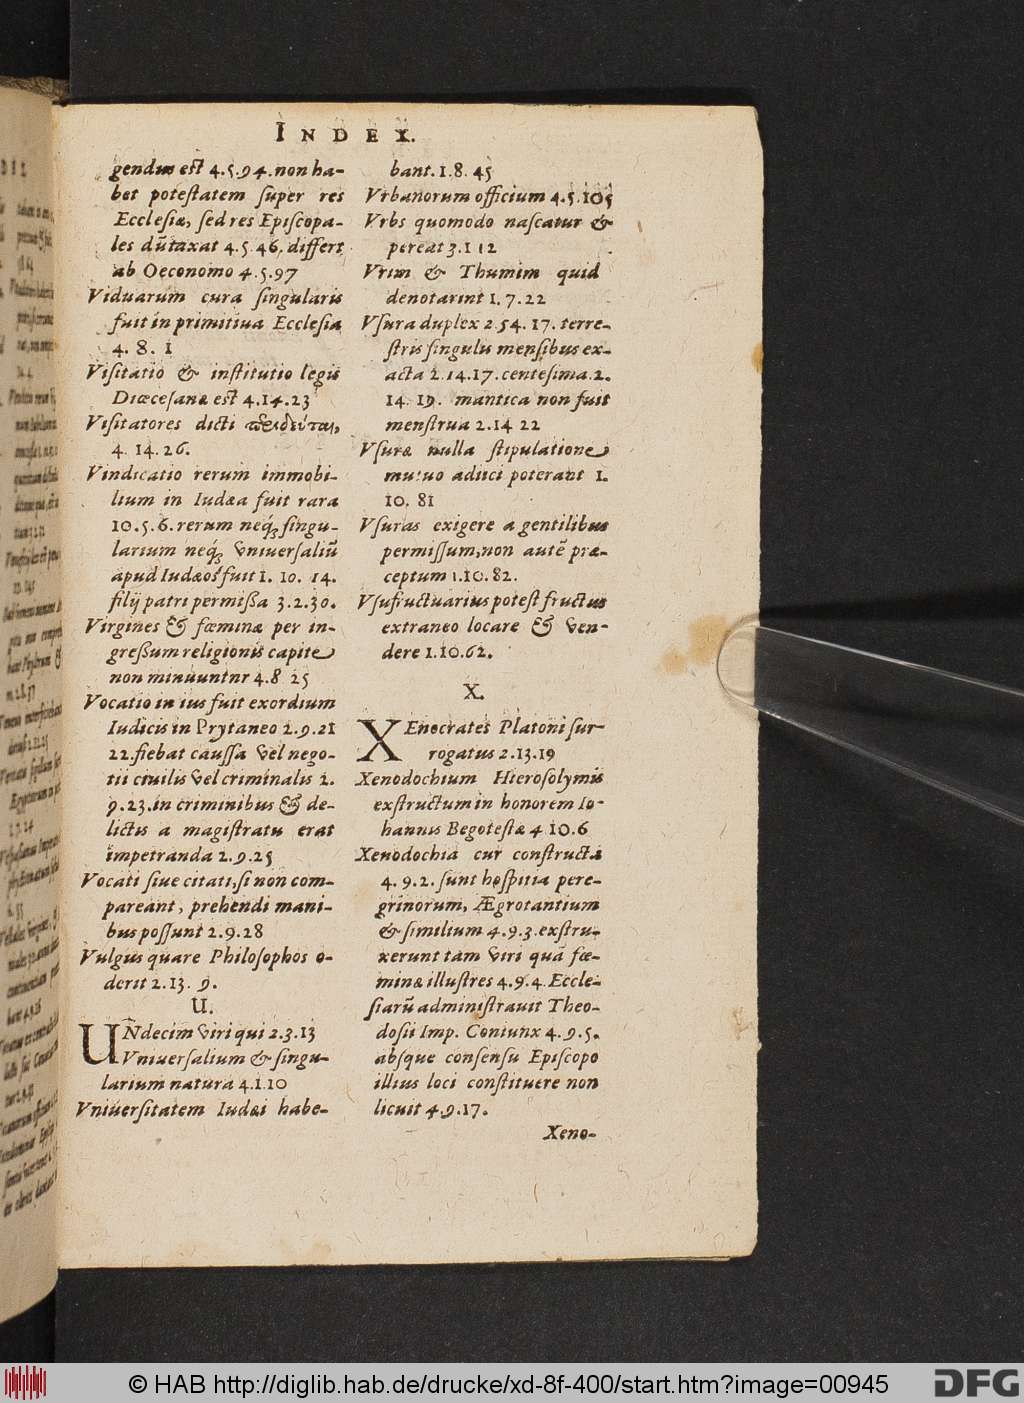 INDEX.
gendus est 4.5.94. non ha-
bet potestatem super res
Ecclesiæ, sed res Episcopa-
les dūtaxat 4.5.46. differt
ab Oeconomo 4.5.97
Viduarum cura singularis
fuit in primitiua Ecclesia
4. 8. 1
Visitatio & institutio legis
Diœcesanæ est 4.14.23
Visitatores dicti
4. 14. 26.
Vindicatio rerum immobi-
lium in Iudæa fuit rara
10.5.6. rerum neq́; singu-
larium neq́; vniuersaliū
apud Iudæos fuit 1. 10. 14.
filij patri permißa 3.2.30.
Virgines & fœminæ per in-
greßum religionis capite
non minuuntnr 4.8 25
Vocatio in ius fuit exordium
Iudicis in Prytaneo 2.9.21
22. fiebat caussa vel nego-
tii ciuilis vel criminalis 2.
9.23. in criminibus & de-
lictis a magistratu erat
impetranda 2.9.25
Vocati siue citati, si non com-
pareant, prehendi mani-
bus possunt 2.9.28
Vulgus quare Philosophos o-
derit 2.13. 9.
U.
UNdecim viri qui 2.3.13
Vniuersalium & singu-
larium natura 4.1.10
Vniuersitatem Iudæi habe-
bant. 1.8.45
Vrbanorum officium 4.5.105
Vrbs quomodo nascatur &
pereat 3.1 12
Vrim & Thumim quid
denotarint 1.7.22
Vsura duplex 2.54.17. terre-
stris singulis mensibus ex-
acta 2.14.17. centesima. 2.
14. 19. mantica non fuit
menstrua 2.14 22
Vsuræ nulla stipulatione
mutuo adiici poterant 1.
10. 81
Vsuras exigere a gentilibus
permissum, non autē præ-
ceptum 1.10.82.
Vsufructuarius potest fructus
extraneo locare & ven-
dere 1.10.62.
X.
XEnocrates Platoni sur-
rogatus 2.13.19
Xenodochium Hierosolymis
exstructum in honorem Io-
hannis Begotestæ 4 10.6
Xenodochia cur constructa
4.9.2. sunt hospitia pere-
grinorum, Ægrotantium
& similium 4.9.3. exstru-
xerunt tam viri quā fœ-
minæ illustres 4.9.4. Eccle-
siarū administrauit Theo-
dosii Imp. Coniunx 4.9.5.
absque consensu Episcopo
illius loci constituere non
licuit 4.9.17.
Xeno-
© HAB http://diglib.hab.de/drucke/xd-8f-400/start.htm?image=00945
DFG